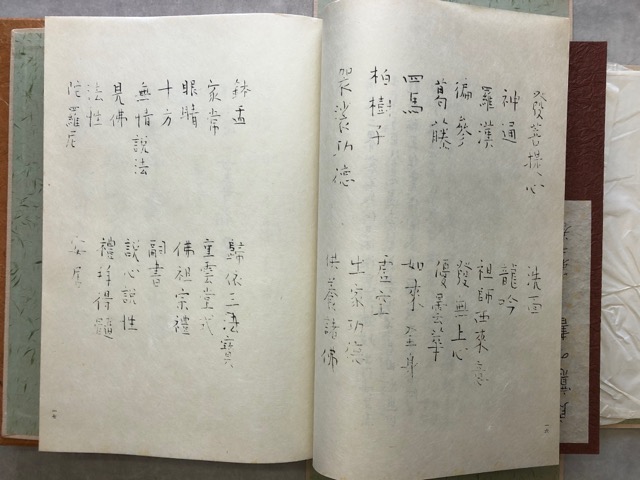 發菩提心
神通
羅漢
徧參
葛藤
四馬
柏樹子
袈裟功德
洗面
龍吟
祖師西來意
發無上心
優曇華
如來全身
虛空
出家功德
供養諸佛
一六
鉢盂
家常
眼睛
十方
無情說法
見佛
法性
陀羅尼
歸依三法寶
重雲堂式
佛祖宗禮
嗣書
說心說性
禮拜得髓
安居
一七